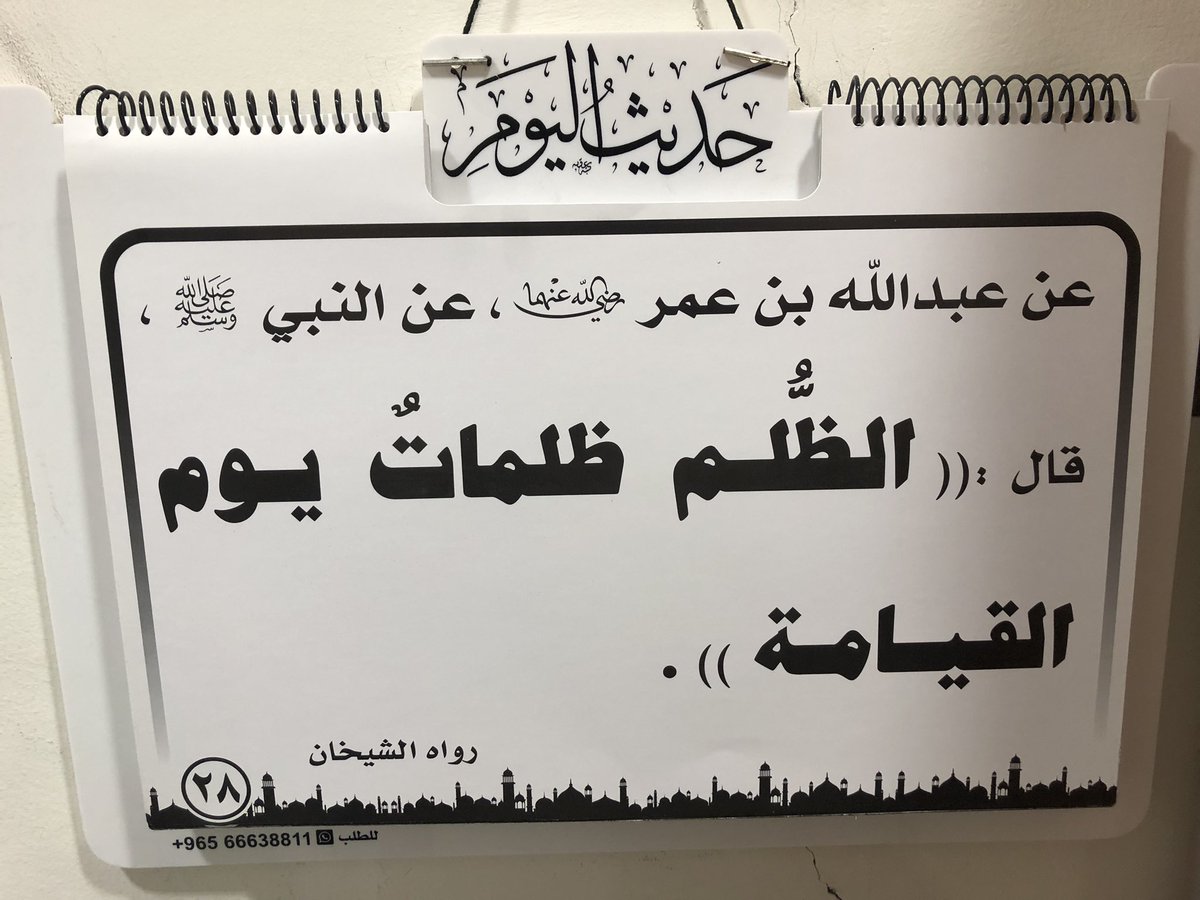 حَدِيثُ اليَوْمِ
عن عبدالله بن عمر رضي الله عنهما ، عن النبي صلى الله عليه وسلم ،
قال :(( الظُّلم ظلماتٌ يوم
القيامة )) .
رواه الشيخان
٢٨
للطلب +965 66638811